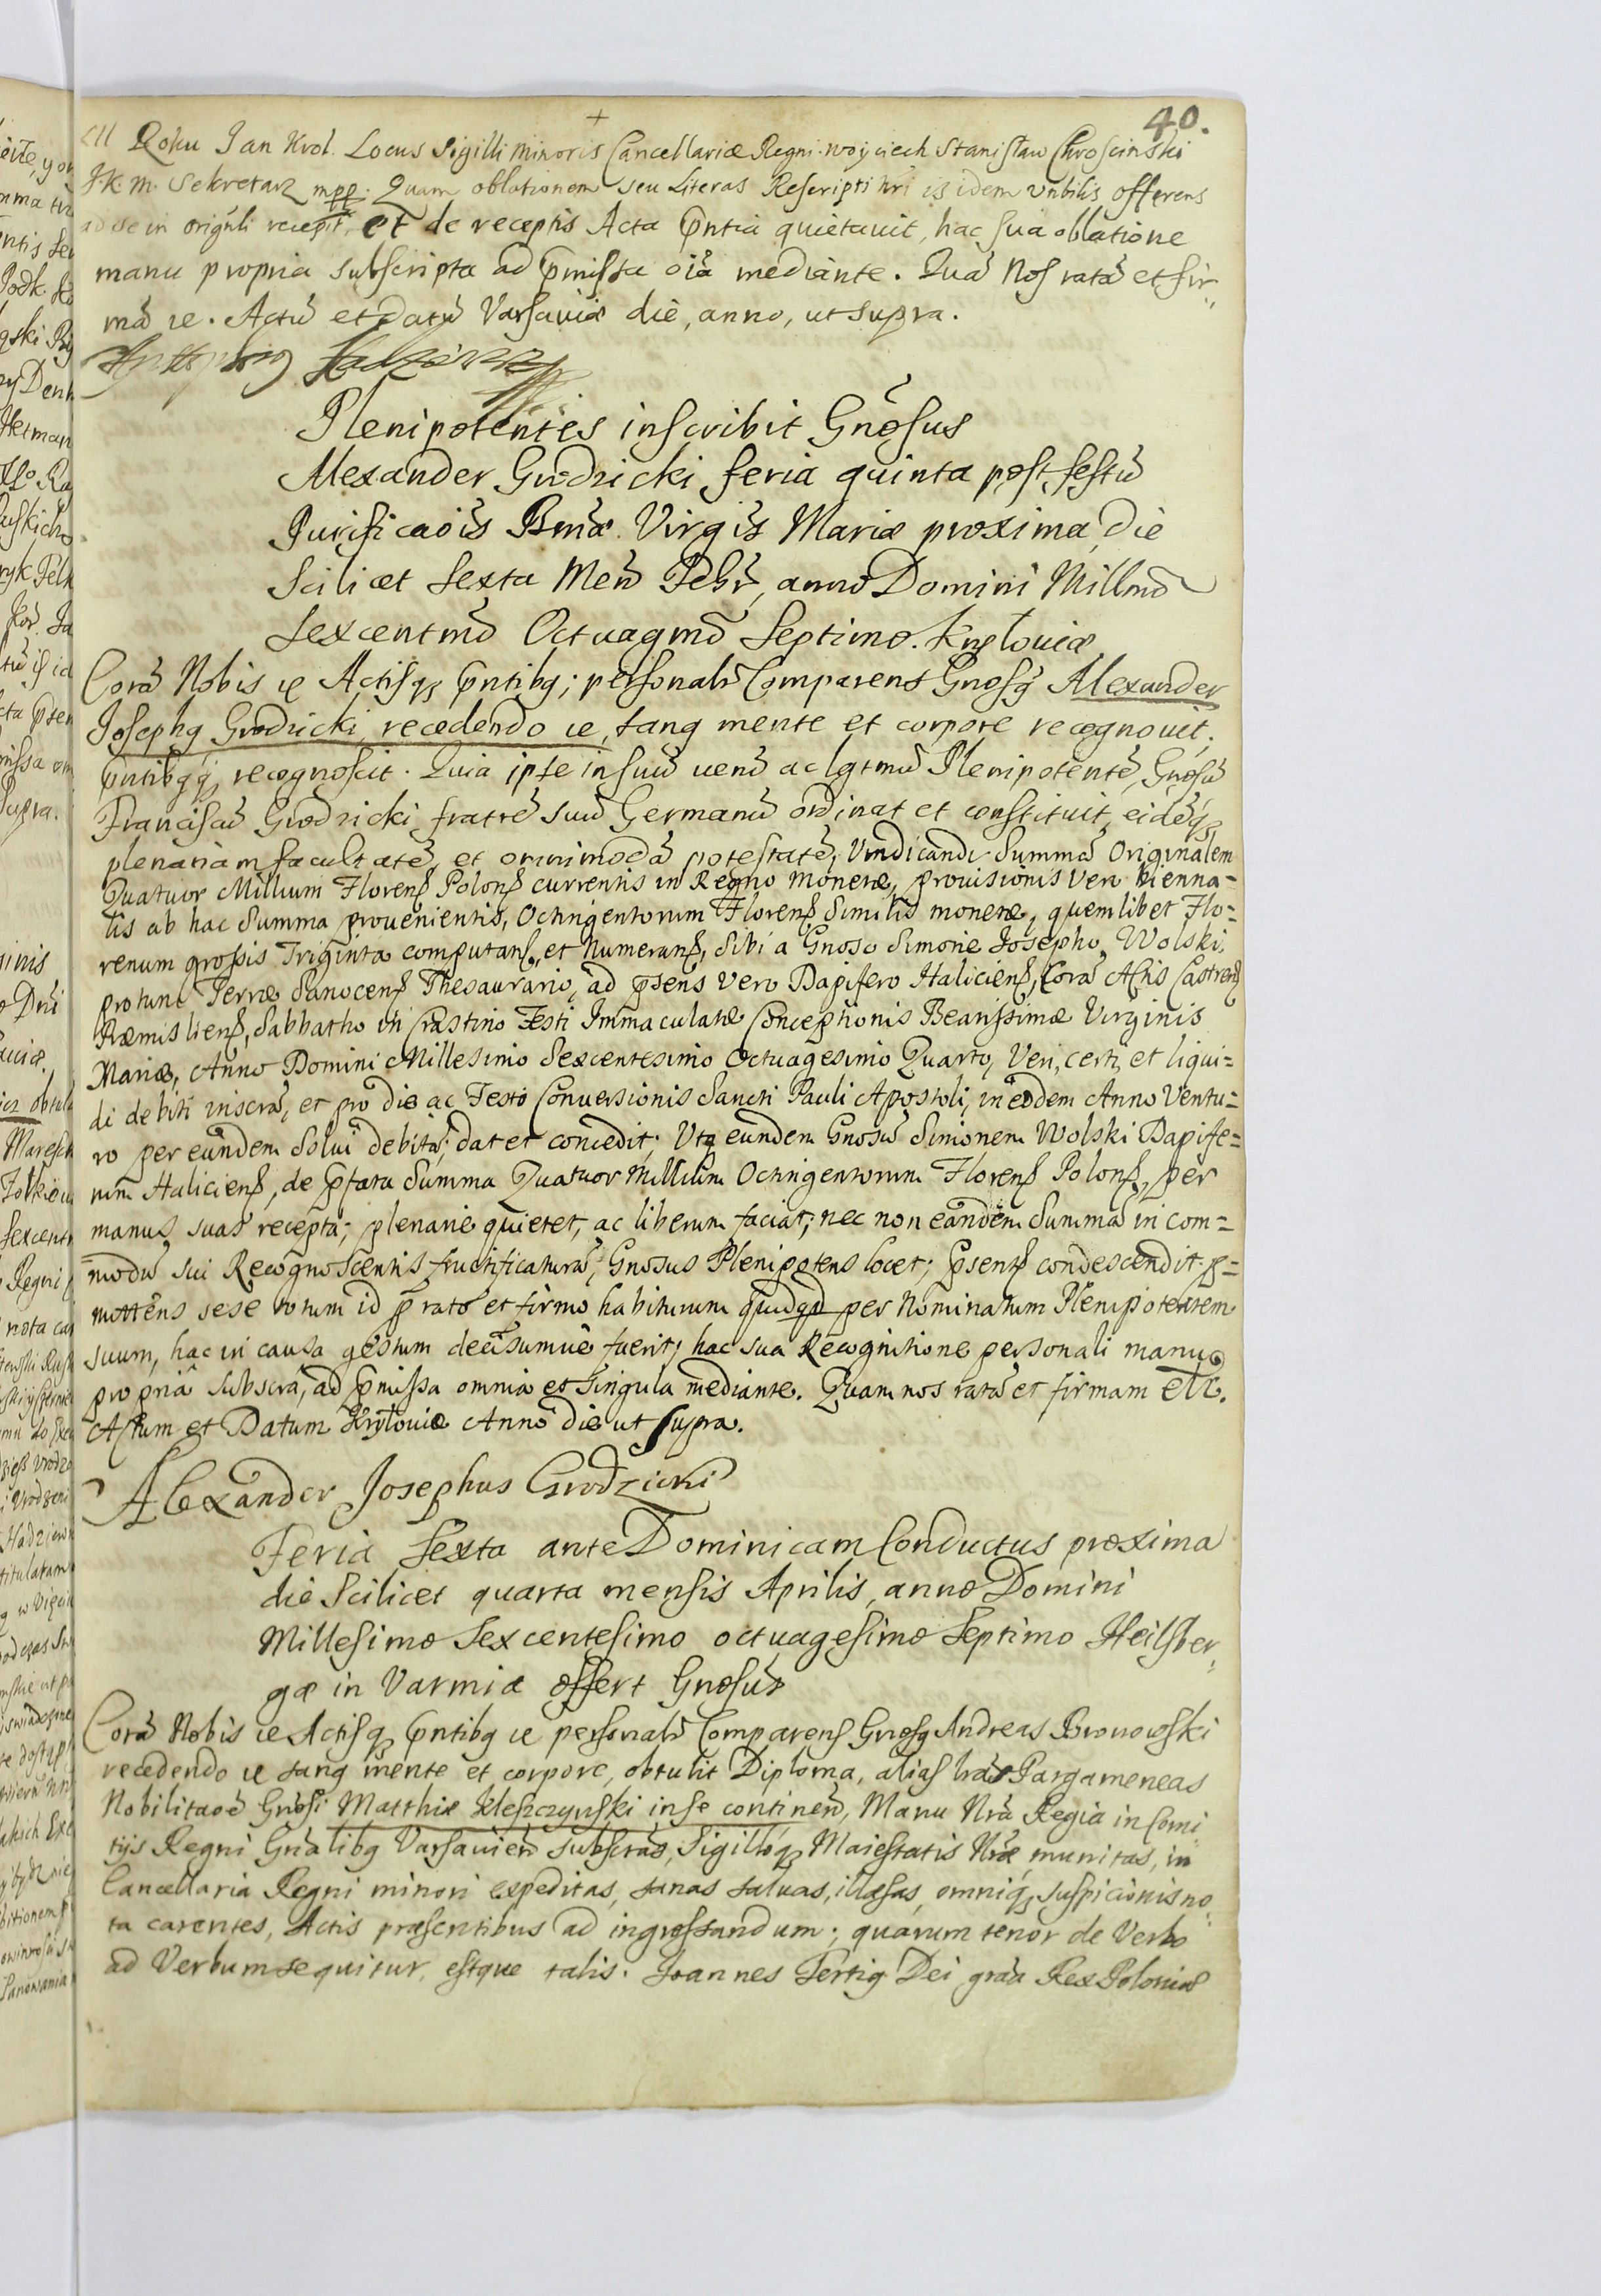 40.
XII Roku Jan Krol. Locus Sigilli Minoris Cancellariæ Regni. Woyciech Stanisław Chroscinski
J.K.M. Sekretarz mpp. Quam oblationem seu Literas Rescripti Nri is idem Vnbilis offerens
ad se in orignli recepit, et de receptis Acta pntia quietauit, hac sua oblatione
manu propria subscripta ad pmissa oia mediante. Quã Nos ratã et fir„
mã ꝛe. Actũ et datũ Varsauiæ die, anno, ut supra.
Plenipotentes inscribit Gnosus
Alexander Grodzicki feria quinta post festũ
Purificaõis Bmæ Virgis Mariæ proxima, die
Scilicet sexta Mens Febr, anno Domini Millmõ
Sexcentmõ Octuagmõ Septimo. Kryłouiæ
Corã Nobis ꝛe Actisq; pntibq; personalr Comparens Gnosq Alexander
Josephq Grodzicki, recedendo ꝛe, sanq mente et corpore recognouit,
pntibqq; recognoscit. Quia ipse in suũ uerũ ac lgtmũ Plenipotentẽ, Gnosũ
Franciscũ Grodzicki fratrẽ suũ Germanũ ordinat et constituit, eidẽq;
plenariam facultatẽ, et omnimodã potestatẽ, Vindicandi Summã Originalem
Quatuor Millium Florens Polons currentis in Regno monetæ, prouisionis Vero bienna=
lis ab hac Summa prouenientis, Octingentorum Florens Similis monetæ, quemlibet Flo=
renum grossis Triginta computans, et Numerans, Sibi a Gnoso Simone Josepho Wolski,
protunc Terræ Sanocens Thesaurario, ad psens Vero Dapifero Haliciens, Corã Actis Castrens
Præmisliens, Sabbatho in Crastino Festi Immaculatæ Conceptionis Beatissimæ Virginis
Mariæ, Anno Domini Millesimo Sexcentesimo Octuagesimo Quarto, Veri, certi, et liqui=
di debiti inscrã, et pro die ac Festo Conuersionis Sancti Pauli Apostoli, in eodem Anno Ventu=
ro per eundem Solui debitã; dat et concedit; Utq eundem Gnosũ Simonem Wolski Dapife=
rum Haliciens, de pfata Summa Quatuor Millium Octingentorum Florens Polons, per
manus suas recepta; plenarie quietet, ac liberum faciat; nec non eandem Summã in com=
modũ sui Recognoscentis fructificaturã, Gnosus Plenipotens locet; psens condescendit. p=
mottens sese totum id p rato et firmo habiturum quidqd per Nominatum Plenipotentem
suum, hac in causa gestum decisumue fuerit; hac sua Recognitione personali manu
propriâ subscrã, ad pmissa omnia et singula mediante. Quam nos ratã et firmam etc.
Actum et Datum Kryłouiæ Anno die ut supra.
Alexander Josephus Grodzicki
Feria Sexta ante Dominicam Conductus proxima
die Scilicet quarta mensis Aprilis, anno Domini
Millesimo Sexcentesimo octuagesimo Septimo Heilsber„
gæ in Varmia offert Gnosus
Corã Nobis ꝛe Actisq; pntibq ꝛe personalr Comparens Gnosq Andreas Bronowski
recedendo ꝛe sanq mente et corpore, obtulit Diploma, alias lras Pargameneas
Nobilitaõe Gnosi Matthiæ Kleszczynski in se continen, Manu Nrã Regia in Comi„
tijs Regni Gnalibq Varsauien subscras, Sigilloq; Maiestatis Nræ munitas, in
Cancellaria Regni minori expeditas, sanas saluas, illæsas, omniq; suspicionis no„
ta carentes, Actis præsentibus ad ingrossandum; quarum tenor de Verbo
ad Verbum sequitur, estque talis. Joannes Tertiq Dei grãa Rex Poloniæ